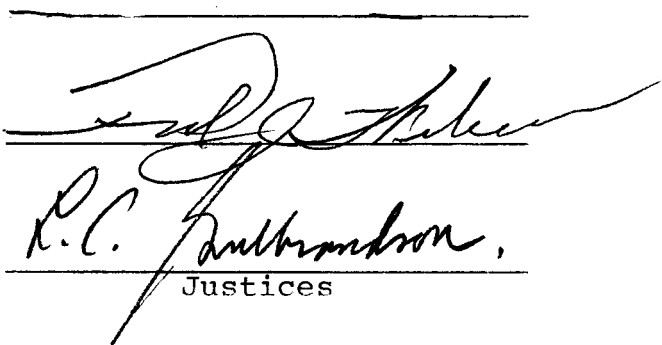 Fred J. Weber
L. C. Gulbrandson.
Justices